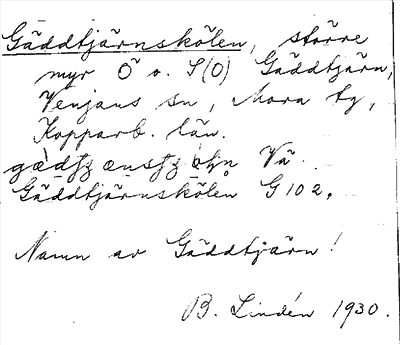 Gäddtjärnskölen, större
myr Ö o. S(O) Gäddtjärn,
Venjans sn, Mora tg,
Kopparb. län.
Vä
Gäddtjärnskölen G 102.
Namn av Gäddtjärn!
B. Lindén 1930.